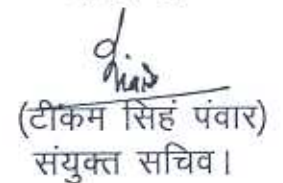 (टीकम सिहं पंवार)
संयुक्त सचिव।